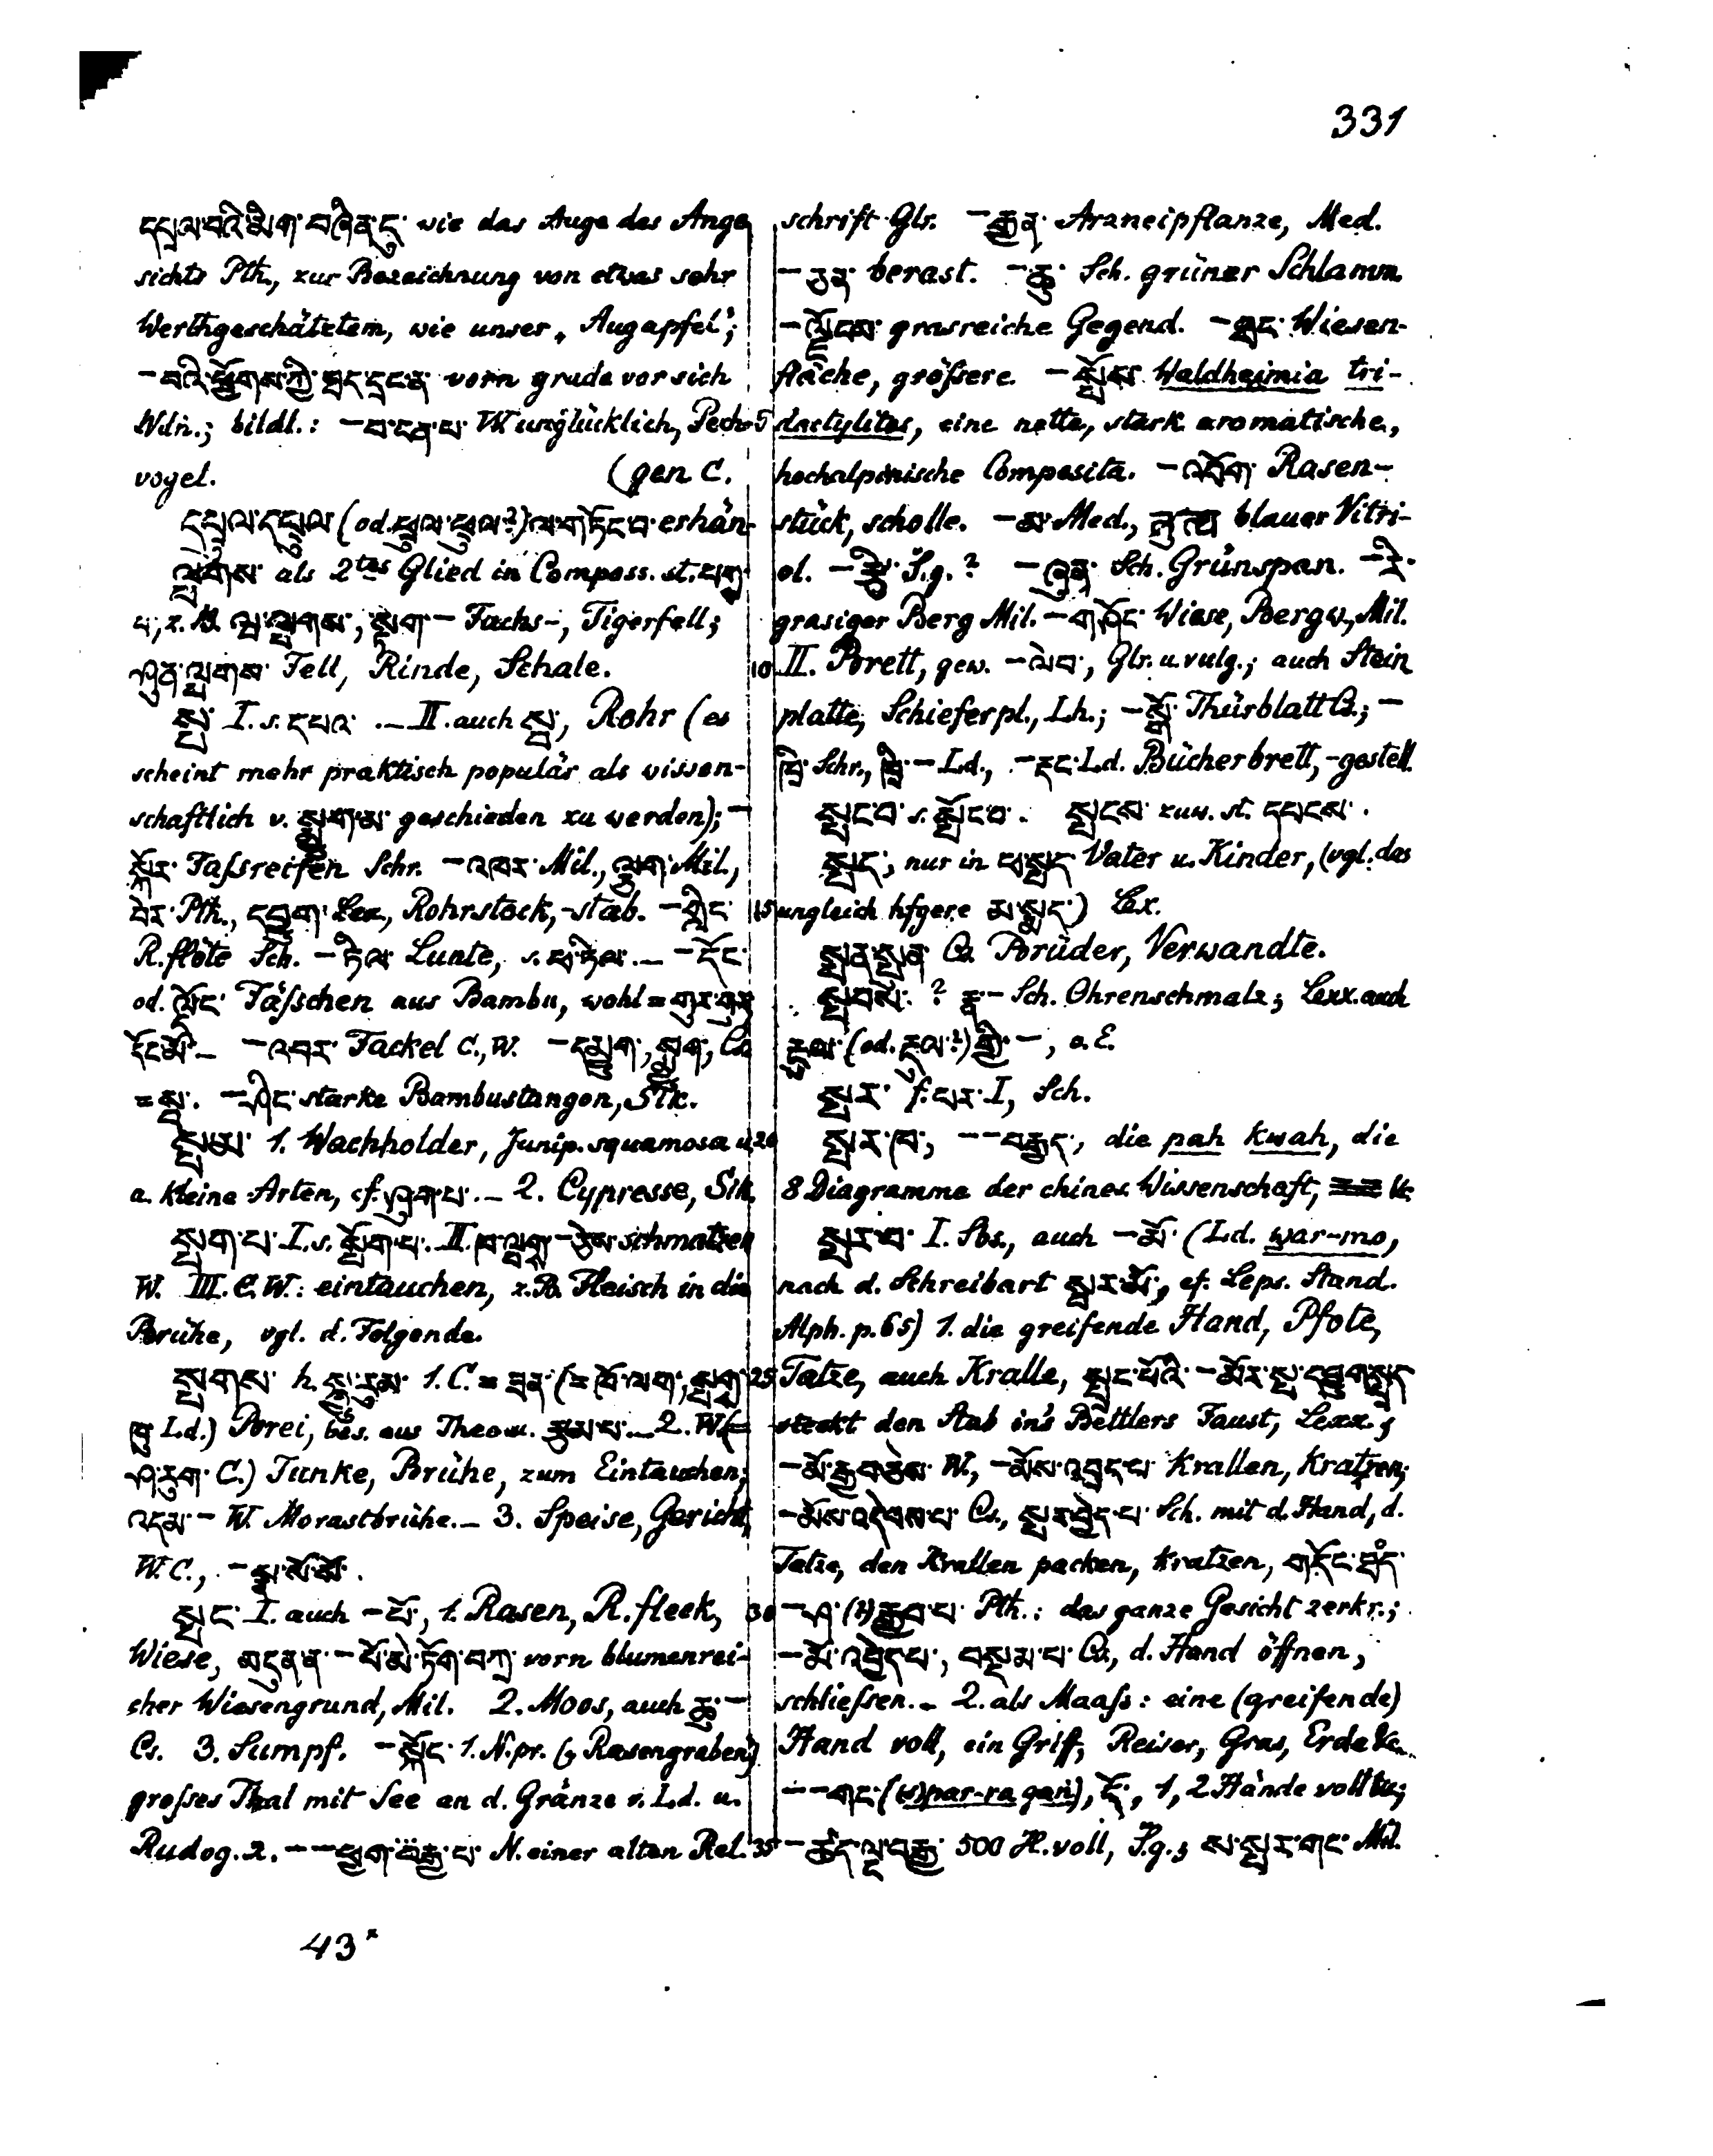 331
དཔྲལ་བའི་མིག་བཞིན་དུ་ wie das Auge des Ange
sichts Pth., zur Bezeichnung von etwas sehr
Werthgeschätztem, wie unser „Augapfel“;
-བའི་ཕྱོགས་ཀྱི་ཐད་དྲང་ན་ vorn grade vor sich
Wdn.; bildl.: -བ་ངན་པ་ W. unglücklich, Pech-
vogel. (gen C.
དཔྱལ་དཔྱལ་ (od. ཕྱལ་ཕྱལ་?) ལ་གཏོང་བ་ erhän-
ལྤགས་ als 2tes Glied in Composs. st. པགས་
པ, z.B. ཝ་ལྤགས་, སྟག- Fuchs-, Tigerfell;
ཤུན་ལྤགས་ Fell, Rinde, Schale.
སྤ་ I. s. དཔའ་ ._ II. auch སྦ་, Rohr (es
scheint mehr praktisch populär als wissen-
schaftlich v. སྨྱུག་མ་ geschieden zu werden); -
སྐོར་ Faßreifen Schr. -འཁར་ Mil., ལྕུག་ Mil.,
བེར་ Pth., དབྱུག་ Lex., Rohrstock, -stab. -གླིང་
R.flöte Sch. - Lunte, s. ._ -དོང་
od. Fäßchen aus Bambu, wohl =
._ -འབར་ Fackel C., W. -དམྱུག་, སྨྱུག་, Cs.
=སྤ་. -ཤིང་ starke Bambustangen, Sik.
སྤ་མ་ 1. Wachholder, Junip. squamosa u.
a. kleine Arten, cf. ཤུག་པ་ ._ 2. Cypresse, Sik.
སྤག་པ་ I. s. སྤོག་པ་. II. schmatzen
W. III. C. W.: eintauchen, z.B. Fleisch in die
Brühe, vgl. d. Folgende.
སྤགས་ h. 1. C. = ཟན་ (=
Ld.) Brei, bes. aus Thee u. རྩམ་པ་._ 2. W. (=
C.) Tunke, Brühe, zum Eintauchen;
འདམ་- W. Morastbrühe._ 3. Speise, Gericht,
W.C., -
སྤང་ I. auch -པོ་, 1. Rasen, R.fleck,
Wiese, མདུན་ན་-པོ་མེ་ཏོག་བཀྲ་ vorn blumenrei-
cher Wiesengrund, Mil. 2. Moos, auch ཆུ་-
Cs. 3. Sumpf. -སྐོང་ 1. N.pr. („Rasengraben“)
großes Thal mit See an d. Gränze v. Ld. u.
Rudog. 2. --ཕྱག་བརྒྱ་པ་ N. einer alten Rel.
43*
schrift Glr. -རྒྱན་ Arzneipflanze, Med.
-ཅན་ berast. -ཆུ་ Sch. grüner Schlamm
-ལྗོངས་ grasreiche Gegend. -ཐང་ Wiesen-
fläche, größere. -སྤོས་ Waldheimia tri-
5 dactylites, eine nette, stark aromatische,
hochalpinische Composita. -འབོག་ Rasen-
stück, scholle. -མ་ Med., blauer Vitri-
ol. -རྩི་ S.g.? -ཞུན་ Sch. Grünspan. -རི་
grasiger Berg Mil. -གཤོང་ Wiese, Bergw., Mil.
10 II. Brett, gew. -ལེབ་, Glr. u. vulg.; auch Stein
platte, Schieferpl., Lh.; -སྒོ་ Thürblatt Cs.; -
ཁྲི་ Schr., ཁྲི་- Ld., - Ld. Bücherbrett, -gestell.
སྤང་བ་ s. སྤོང་བ་. སྤངས་ zuw. st. དཔངས་.
སྤད་, nur in ཕ་སྤད་ Vater u. Kinder, (vgl. das
15 ungleich hfgere མ་སྨད་) Lex.
སྤན་སྤུན་ Cs. Brüder, Verwandte.
སྤབས་? རྣ་- Sch. Ohrenschmalz; Lexx. auch
(od. རྡུལ་?) གྱི་-, o.E.
སྤར་ f. པར་ I, Sch.
20 སྤར་ཁ་, --བརྒྱད་, die pah kwah, die
8 Diagramme der chines. Wissenschaft,
སྤར་བ་ I. Sbs., auch -མོ་ (Ld. war-mo,
nach d. Schreibart སྦར་མོ་, cf. Leps. Stand.
Alph. p. 65) 1. die greifende Hand, Pfote,
25 Tatze, auch Kralle, སྤྲང་པོའི་-མོར་
steckt den Stab in's Bettlers Faust, Lexx.;
-མོ་རྒྱབ་ཅེས་ W., -མོས་འབྲད་པ་ Krallen, kratzen;
-མོས་འདེབས་པ་ Cs., སྤར་བྱེད་པ་ Sch. mit d. Hand, d.
Tatze, den Krallen packen, kratzen, གདོང་
30 -ཤ་(?) རྒྱབ་པ་ Pth.: das ganze Gesicht zerkr.;
-མོ་འབྱེད་པ་, བསྡམ་པ་ Cs., d. Hand öffnen,
schließen._ 2. als Maaß: eine (greifende)
Hand voll, ein Griff, Reiser, Gras, Erde &c.
--གང་ (par-ra gań), དོ་, 1, 2 Hände voll &c.;
35 -ཚད་ལྔ་བརྒྱ་ 500 H. voll, S.g.; ས་སྤར་གང་ Mil.